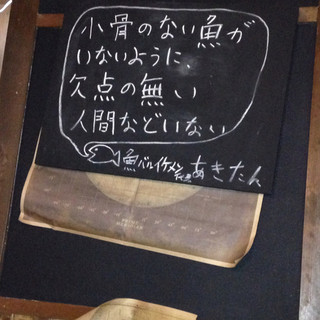 小骨のない魚が
いないように、
欠点の無い
人間などいない
魚バルイケメン あきたん